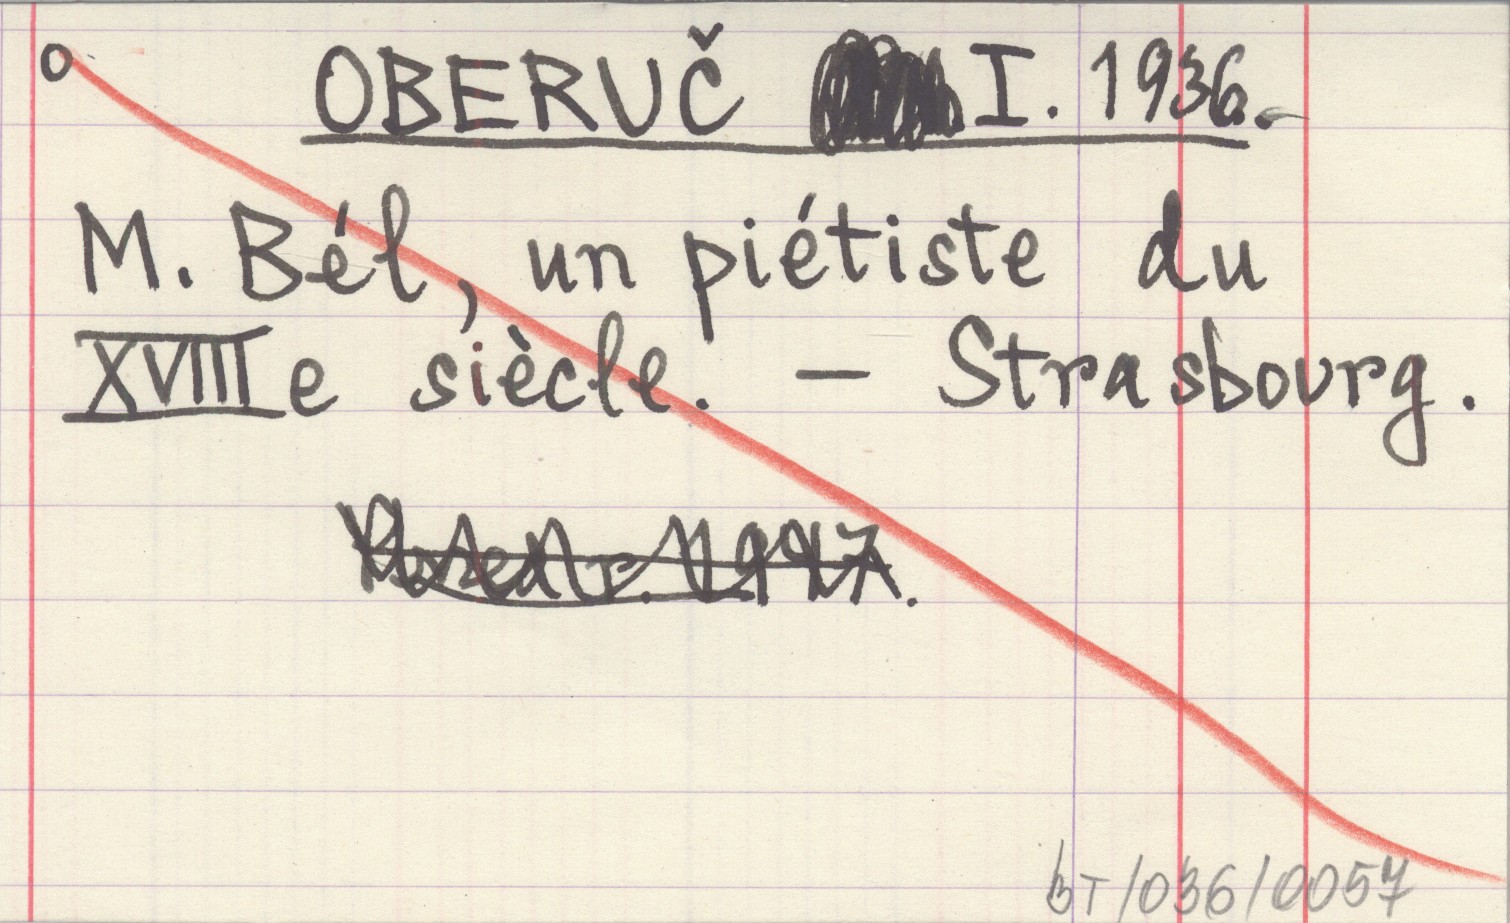 o OBERUČ I. 1936.
M. Bél, un piétiste du
XVIIIe siècle. – Strasbourg.
BT/036/0057